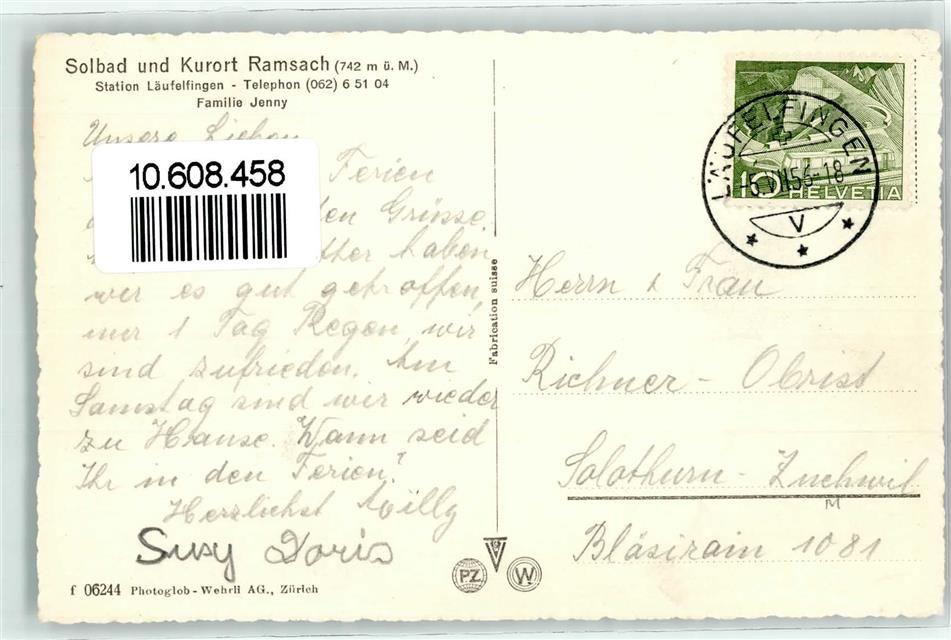 Solbad und Kurort Ramsach (742 m ü. M.)
Station Läufelfingen - Telephon (062) 6 51 04
Familie Jenny
Unsere Lieben
10.608.458
Ferien
den Grüsse.
haben
wir es gut getroffen,
nur 1 Tag Regen, wir
sind zufrieden. Am
Samstag sind wir wieder
zu Hause. Wann seid
Ihr in den Ferien?
Herzlichst Willy
Susy Doris
f 06244 Photoglob-Wehrli AG., Zürich
Fabrication suisse
PZ
W
LÄUFELFINGEN
56-18
V
10 HELVETIA
Herrn & Frau
Richner - Obrist
Solothurn - Zuchwil
M
Bläsirain 1081